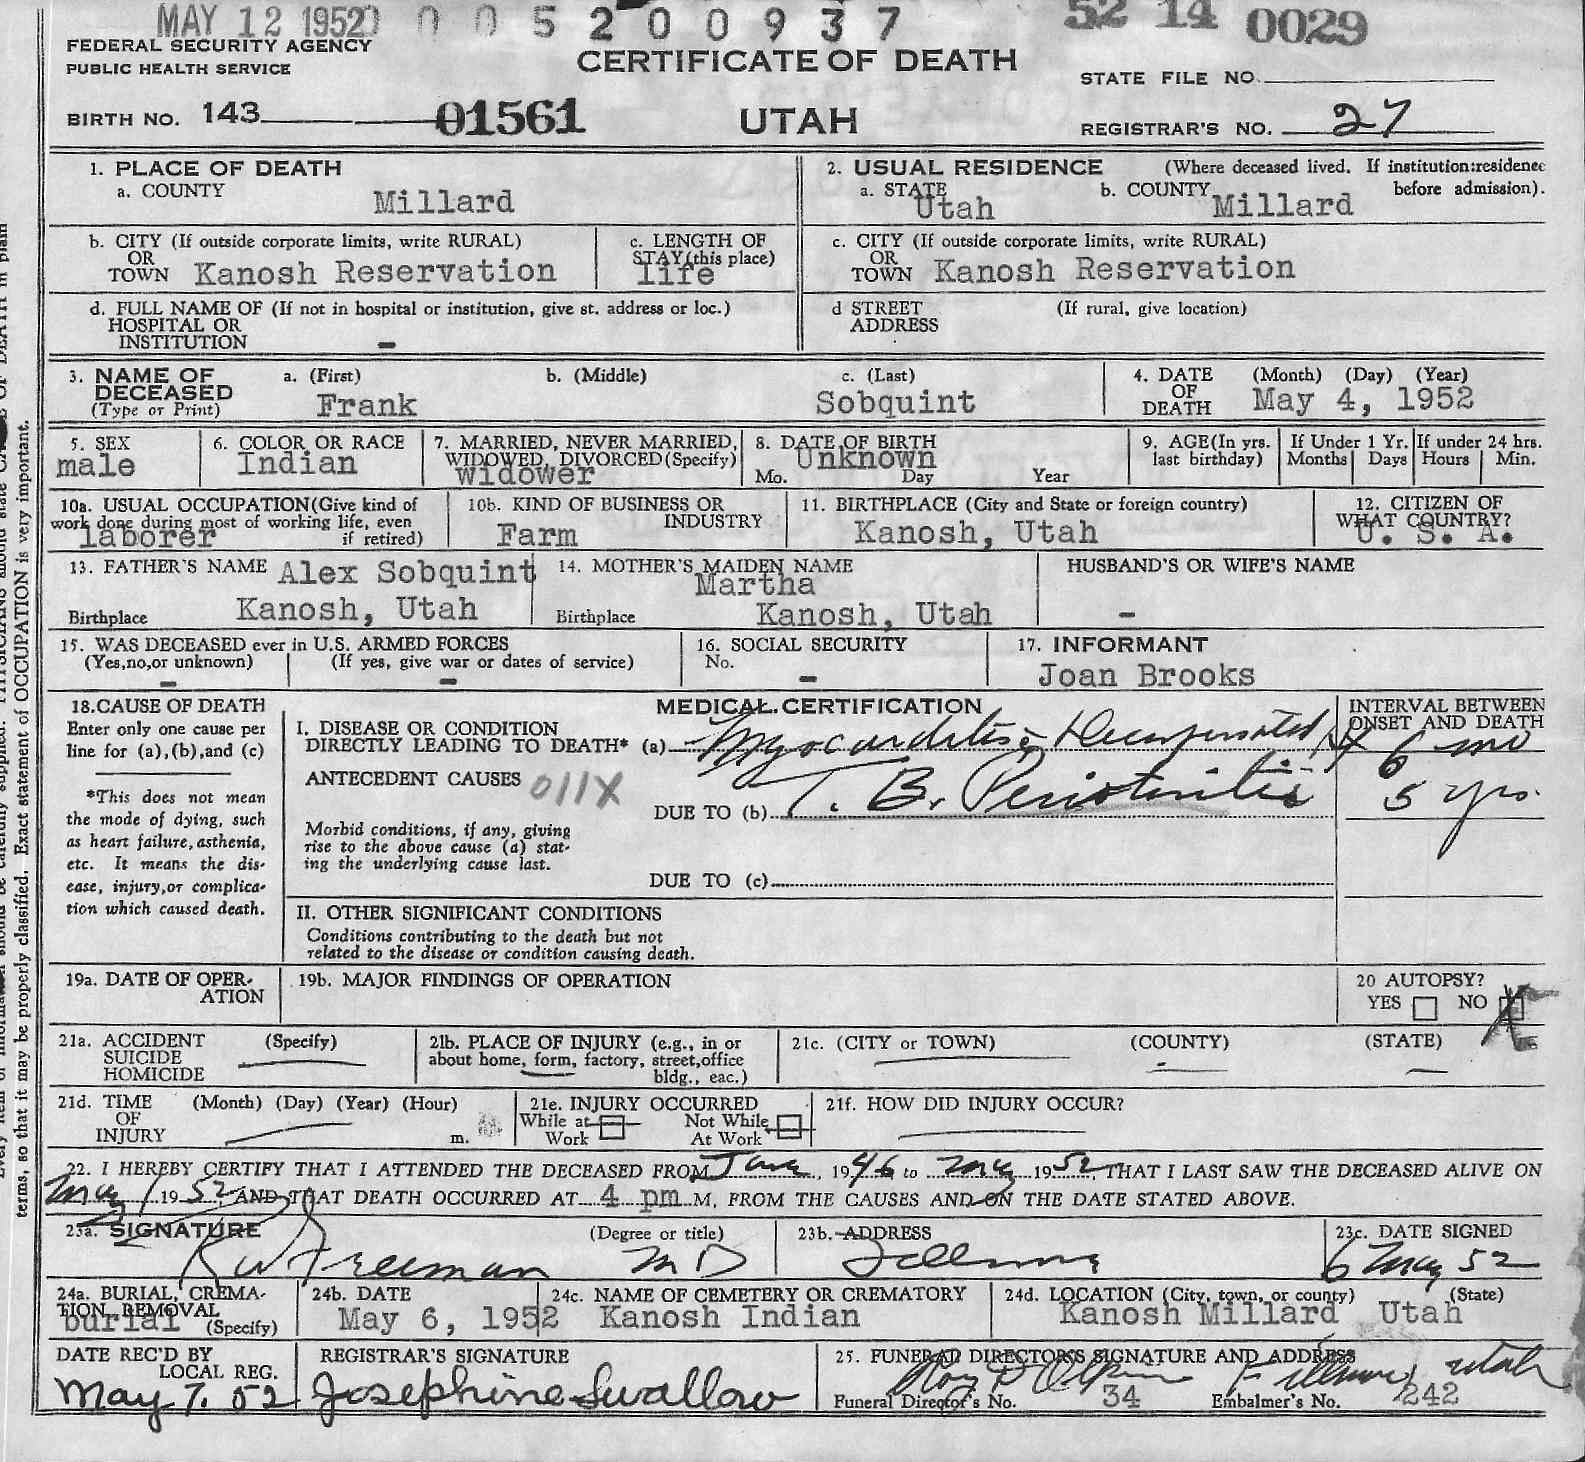 MAY 12 1952 0 0 5 2 0 0 9 3 7 52 14 0029
FEDERAL SECURITY AGENCY
PUBLIC HEALTH SERVICE
CERTIFICATE OF DEATH
STATE FILE NO.
BIRTH NO. 143 01561 UTAH REGISTRAR'S NO. 27
1. PLACE OF DEATH
a. COUNTY Millard
2. USUAL RESIDENCE (Where deceased lived. If institution:residence before admission).
a. STATE Utah b. COUNTY Millard
b. CITY (If outside corporate limits, write RURAL)
OR
TOWN Kanosh Reservation
c. LENGTH OF
STAY(this place)
life
c. CITY (If outside corporate limits, write RURAL)
OR
TOWN Kanosh Reservation
d. FULL NAME OF (If not in hospital or institution, give st. address or loc.)
HOSPITAL OR
INSTITUTION -
d STREET (If rural, give location)
ADDRESS
3. NAME OF DECEASED
(Type or Print)
a. (First) b. (Middle) c. (Last)
Frank Sobquint
4. DATE OF DEATH (Month) (Day) (Year)
May 4, 1952
5. SEX
male
6. COLOR OR RACE
Indian
7. MARRIED, NEVER MARRIED,
WIDOWED, DIVORCED(Specify)
widower
8. DATE OF BIRTH
Unknown
Mo. Day Year
9. AGE(In yrs.
last birthday)
If Under 1 Yr.
Months Days
If under 24 hrs.
Hours Min.
10a. USUAL OCCUPATION(Give kind of
work done during most of working life, even
if retired)
laborer
10b. KIND OF BUSINESS OR
INDUSTRY
Farm
11. BIRTHPLACE (City and State or foreign country)
Kanosh, Utah
12. CITIZEN OF
WHAT COUNTRY?
U. S. A.
13. FATHER'S NAME Alex Sobquint
Birthplace Kanosh, Utah
14. MOTHER'S MAIDEN NAME
Martha
Birthplace Kanosh, Utah
HUSBAND'S OR WIFE'S NAME
-
15. WAS DECEASED ever in U.S. ARMED FORCES
(Yes,no,or unknown) (If yes, give war or dates of service)
- -
16. SOCIAL SECURITY
No.
-
17. INFORMANT
Joan Brooks
18.CAUSE OF DEATH
Enter only one cause per
line for (a),(b),and (c)
*This does not mean
the mode of dying, such
as heart failure, asthenia,
etc. It means the dis-
ease, injury,or complica-
tion which caused death.
MEDICAL CERTIFICATION
INTERVAL BETWEEN
ONSET AND DEATH
I. DISEASE OR CONDITION
DIRECTLY LEADING TO DEATH* (a) Myocarditis 6 mo
ANTECEDENT CAUSES 011X
DUE TO (b) T. B. 5 yrs.
Morbid conditions, if any, giving
rise to the above cause (a) stat-
ing the underlying cause last.
DUE TO (c)
II. OTHER SIGNIFICANT CONDITIONS
Conditions contributing to the death but not
related to the disease or condition causing death.
19a. DATE OF OPER-
ATION
19b. MAJOR FINDINGS OF OPERATION
20 AUTOPSY?
YES NO X
21a. ACCIDENT (Specify)
SUICIDE
HOMICIDE
21b. PLACE OF INJURY (e.g., in or
about home, form, factory, street,office
bldg., eac.)
21c. (CITY or TOWN) (COUNTY) (STATE)
21d. TIME (Month) (Day) (Year) (Hour)
OF
INJURY m.
21e. INJURY OCCURRED
While at Work Not While At Work
21f. HOW DID INJURY OCCUR?
22. I HEREBY CERTIFY THAT I ATTENDED THE DECEASED FROM June, 1946 to May 1952, THAT I LAST SAW THE DECEASED ALIVE ON
May 1 1952 AND THAT DEATH OCCURRED AT 4 pm M, FROM THE CAUSES AND ON THE DATE STATED ABOVE.
23a. SIGNATURE (Degree or title)
Freeman MD
23b. ADDRESS
Fillmore
23c. DATE SIGNED
6 May 52
24a. BURIAL, CREMA-
TION, REMOVAL
(Specify)
burial
24b. DATE
May 6, 1952
24c. NAME OF CEMETERY OR CREMATORY
Kanosh Indian
24d. LOCATION (City, town, or county) (State)
Kanosh Millard Utah
DATE REC'D BY
LOCAL REG.
May 7. 52
REGISTRAR'S SIGNATURE
Josephine Swallow
25. FUNERAL DIRECTOR'S SIGNATURE AND ADDRESS
Fillmore, Utah
Funeral Director's No. 34 Embalmer's No. 242
terms, so that it may be properly classified. Exact statement of OCCUPATION is very important.